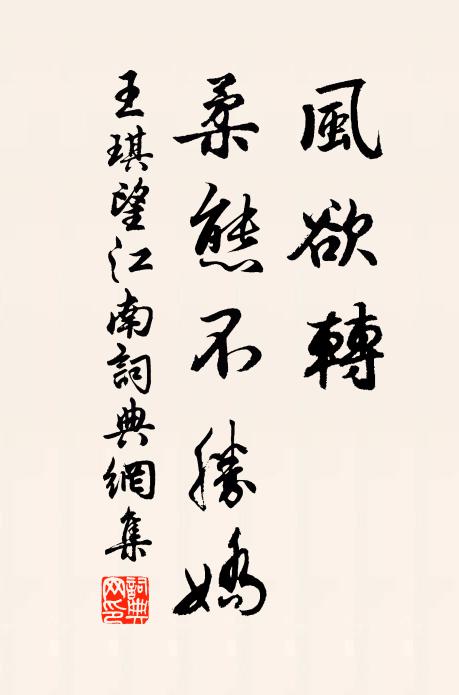 風欲轉
柔態不勝嬌
王琪望江南詞典網集
詞典网印